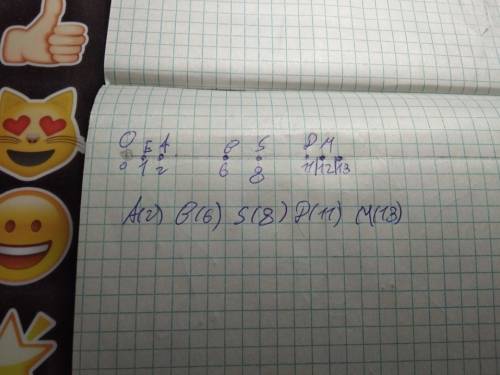 O E A B S P M
0 1 2 6 8 11 12 13
A(2) B(6) S(8) P(11) M(13)